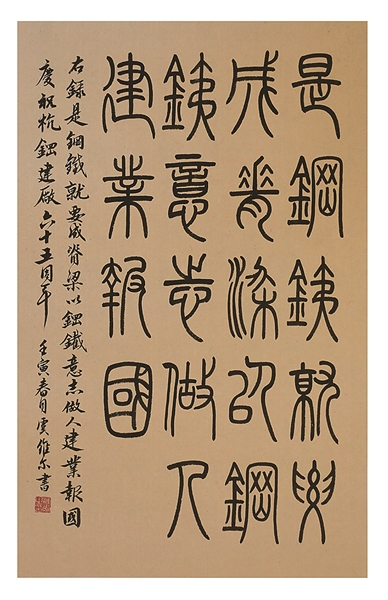 是鋼銕就要
成脊梁以鋼
銕意志做人
建業報國
右録是鋼鐵就要成脊梁以鋼鐵意志做人建業報國
慶祝杭鋼建廠六十五周年 壬寅春月 維尔書